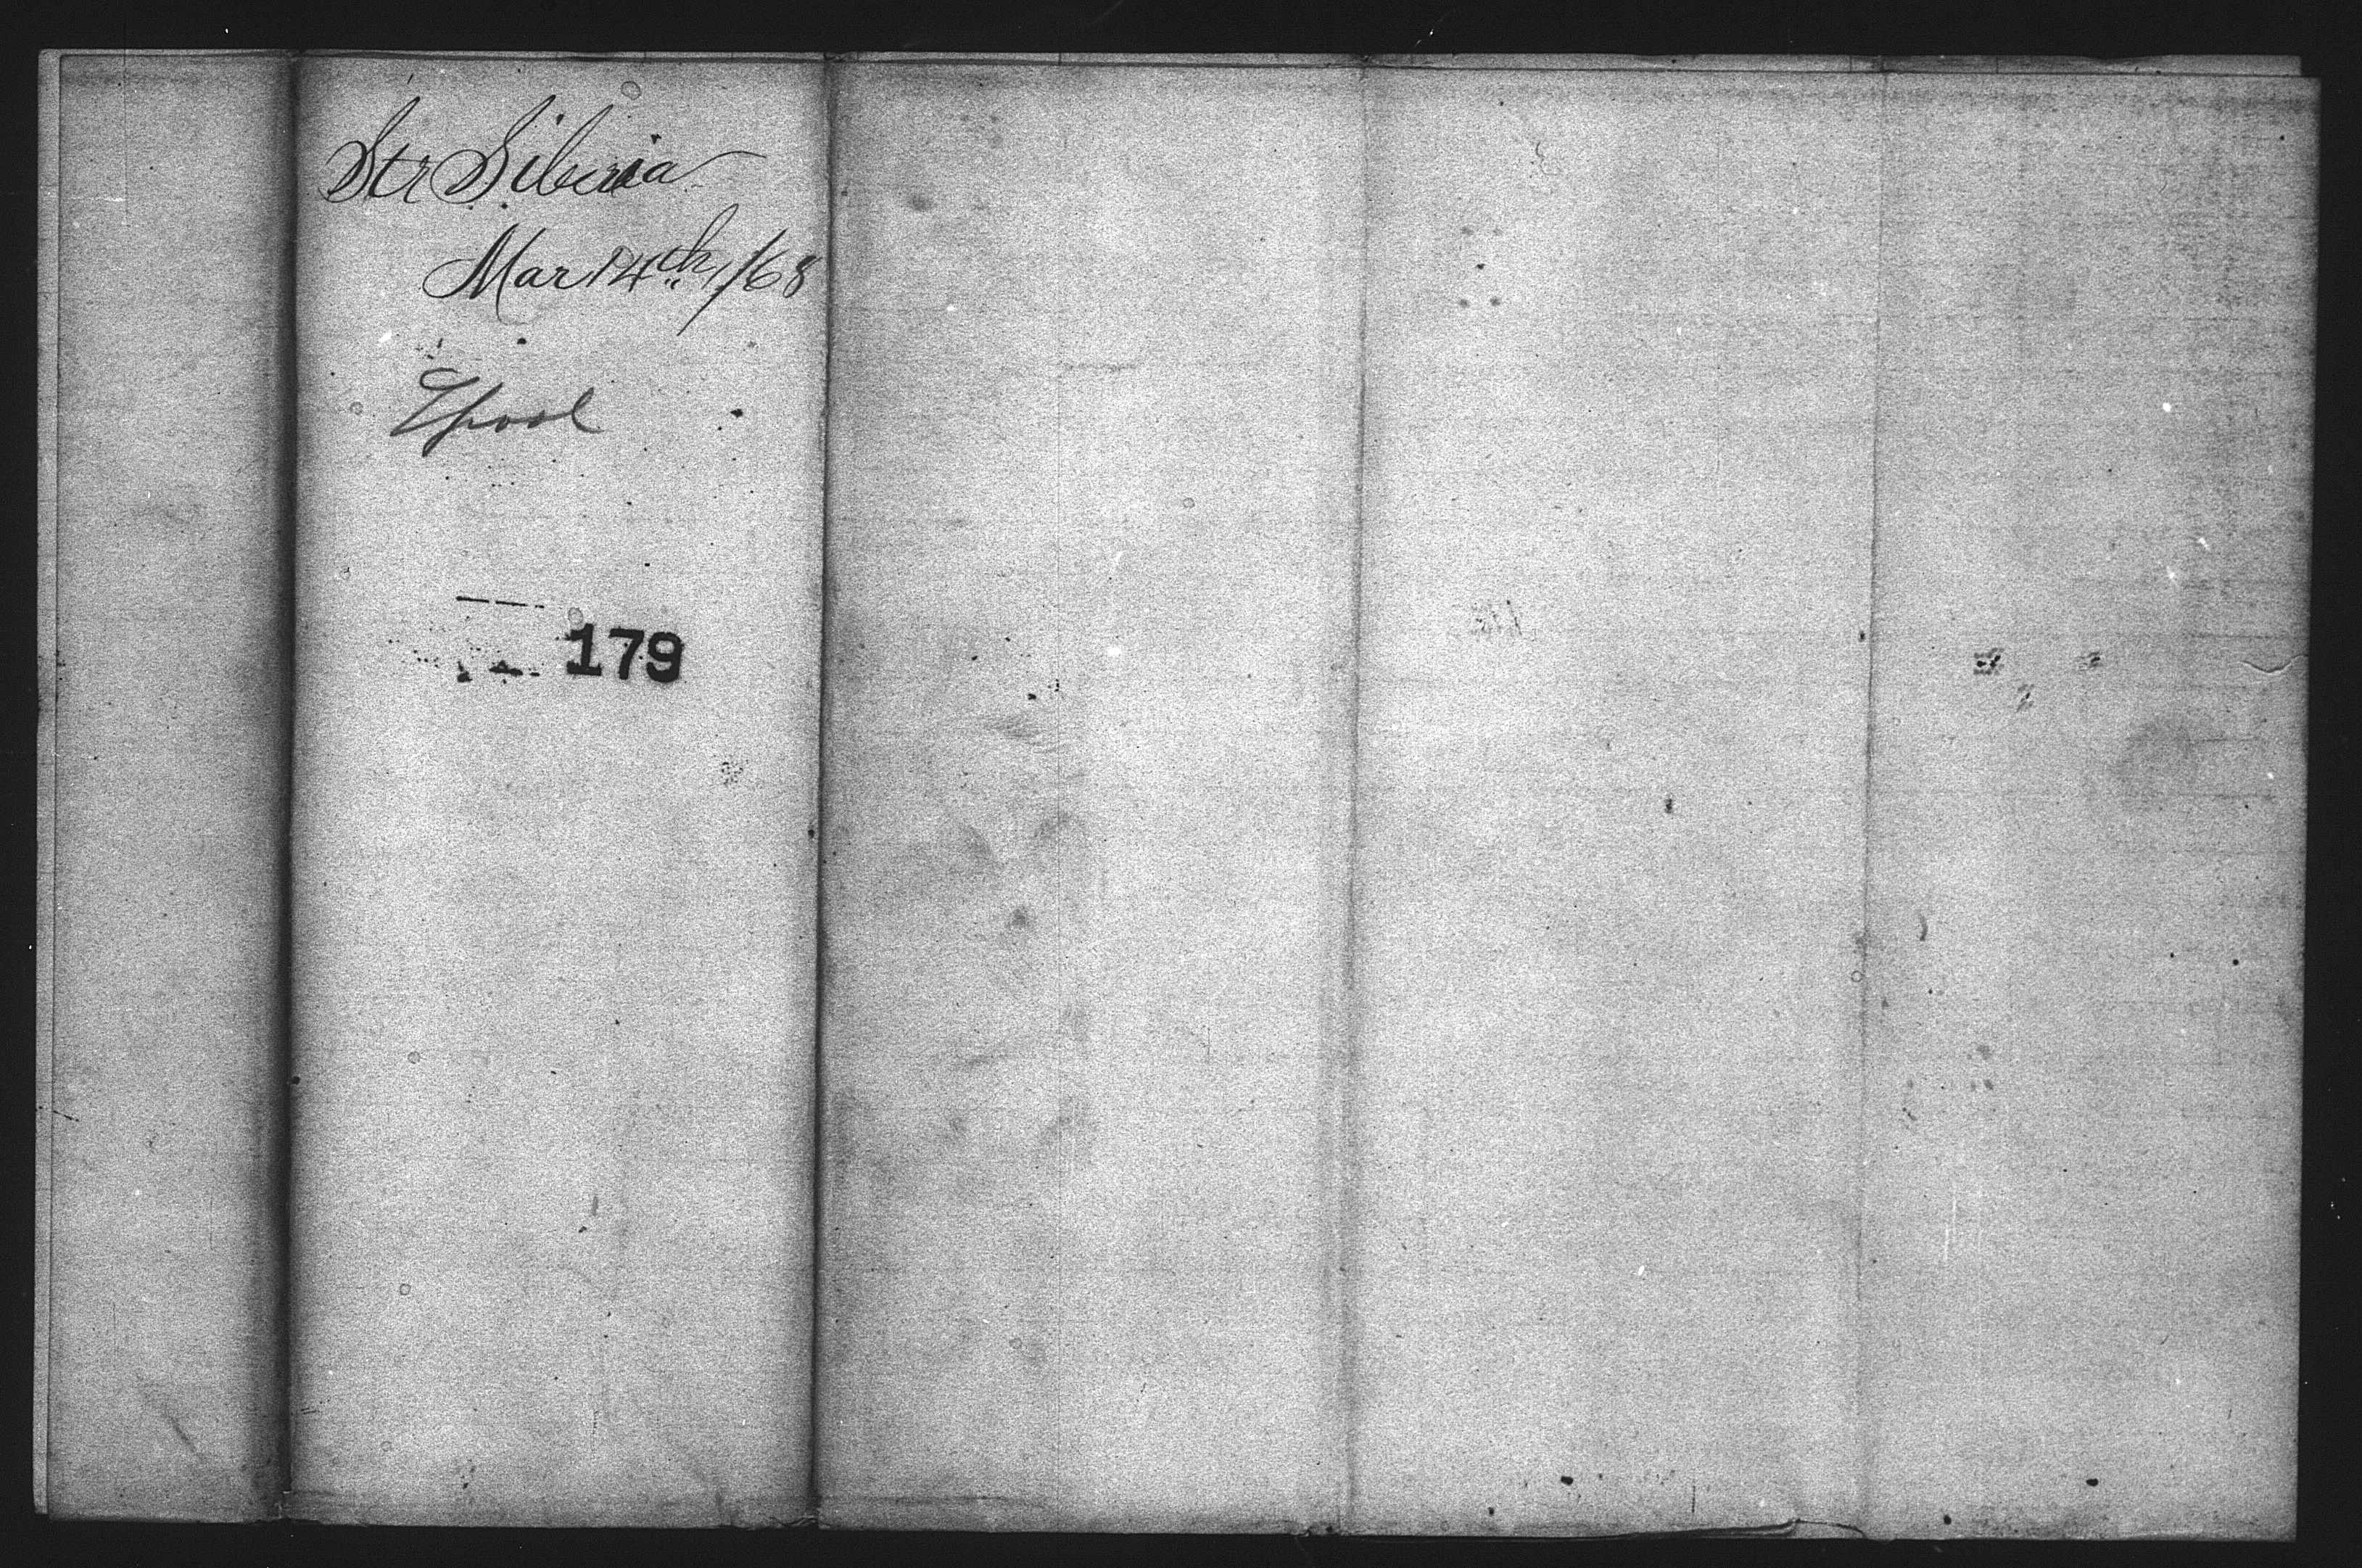 Str Siberia
Mar 14th, /68
Lpool
179